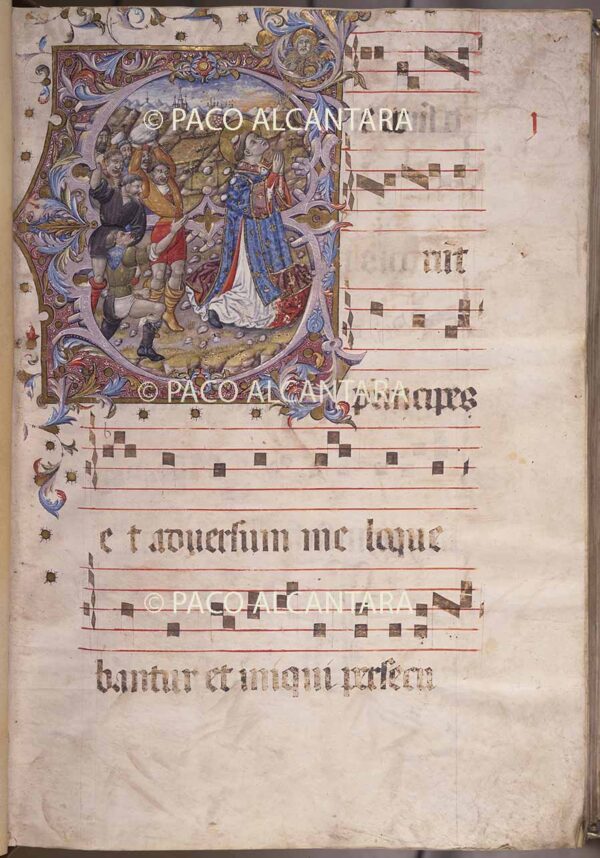 © PACO ALCANTARA
I
© PACO ALCANTARA
principes
e t aduersum me loque
© PACO ALCANTARA
bantur et iniqui persecu